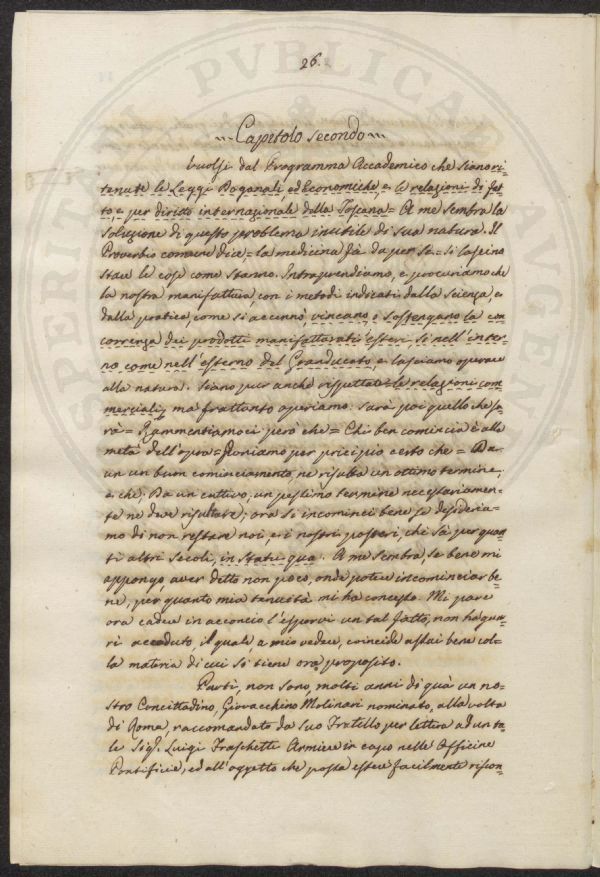 26.
Capitolo secondo
Vuolsi dal Programma Accademico che siano ri=
tenute le Leggi Doganali, ed Economiche, e le relazioni di fat=
to, e per diritto internazionale della Toscana= A me sembra la
soluzione di questo problema inutile di sua natura. Il
Proverbio comune dice= la medicina fà da per se.= si lascino
stare le cose come stanno. Intraprendiamo, e procuriamo che
la nostra manifattura con i metodi indicati dalla scienza, e
dalla pratica, come si accennò, vincano, e sostengano la con
correnza dei prodotti manifatturati esteri, sì nell'inter=
no, come nell'esterno del Granducato, e lasciamo operare
alla natura. Siano pur anche rispettate le relazioni com
merciali, ma frattanto operiamo. Sarà poi quello che sa=
rà= Rammentiamoci però che= Chi ben comincia è alla
metà dell'opra= Poniamo per principio certo che = Da
un buon cominciamento, ne risulta un ottimo termine,
e che, Da un cattivo, un pessimo termine necessariamen=
te ne deve risultare; ora si incominci bene se desideria=
mo di non restare noi, e i nostri posteri, chi sà per quan
ti altri secoli, in statu quo. A me sembra, se bene mi
appongo, aver detto non poco, onde potere incominciar be=
ne, per quanto mia tenuità mi ha concesso. Mi pare
ora cadere in acconcio l'esporvi un tal fatto, non ha gua=
ri accaduto, il quale, a mio vedere, coincide assai bene col=
la materia di cui si tiene ora proposito.
Partì, non sono, molti anni di quà un no=
stro Concittadino, Giovacchino Molinari nominato, alla volta
di Roma, raccomandato da suo Fratello per lettera ad un ta=
le Sigr. Luigi Fraschetti Armiere in capo nelle Officine
Pontificie, ed all'oggetto che possa essere facilmente riscon=